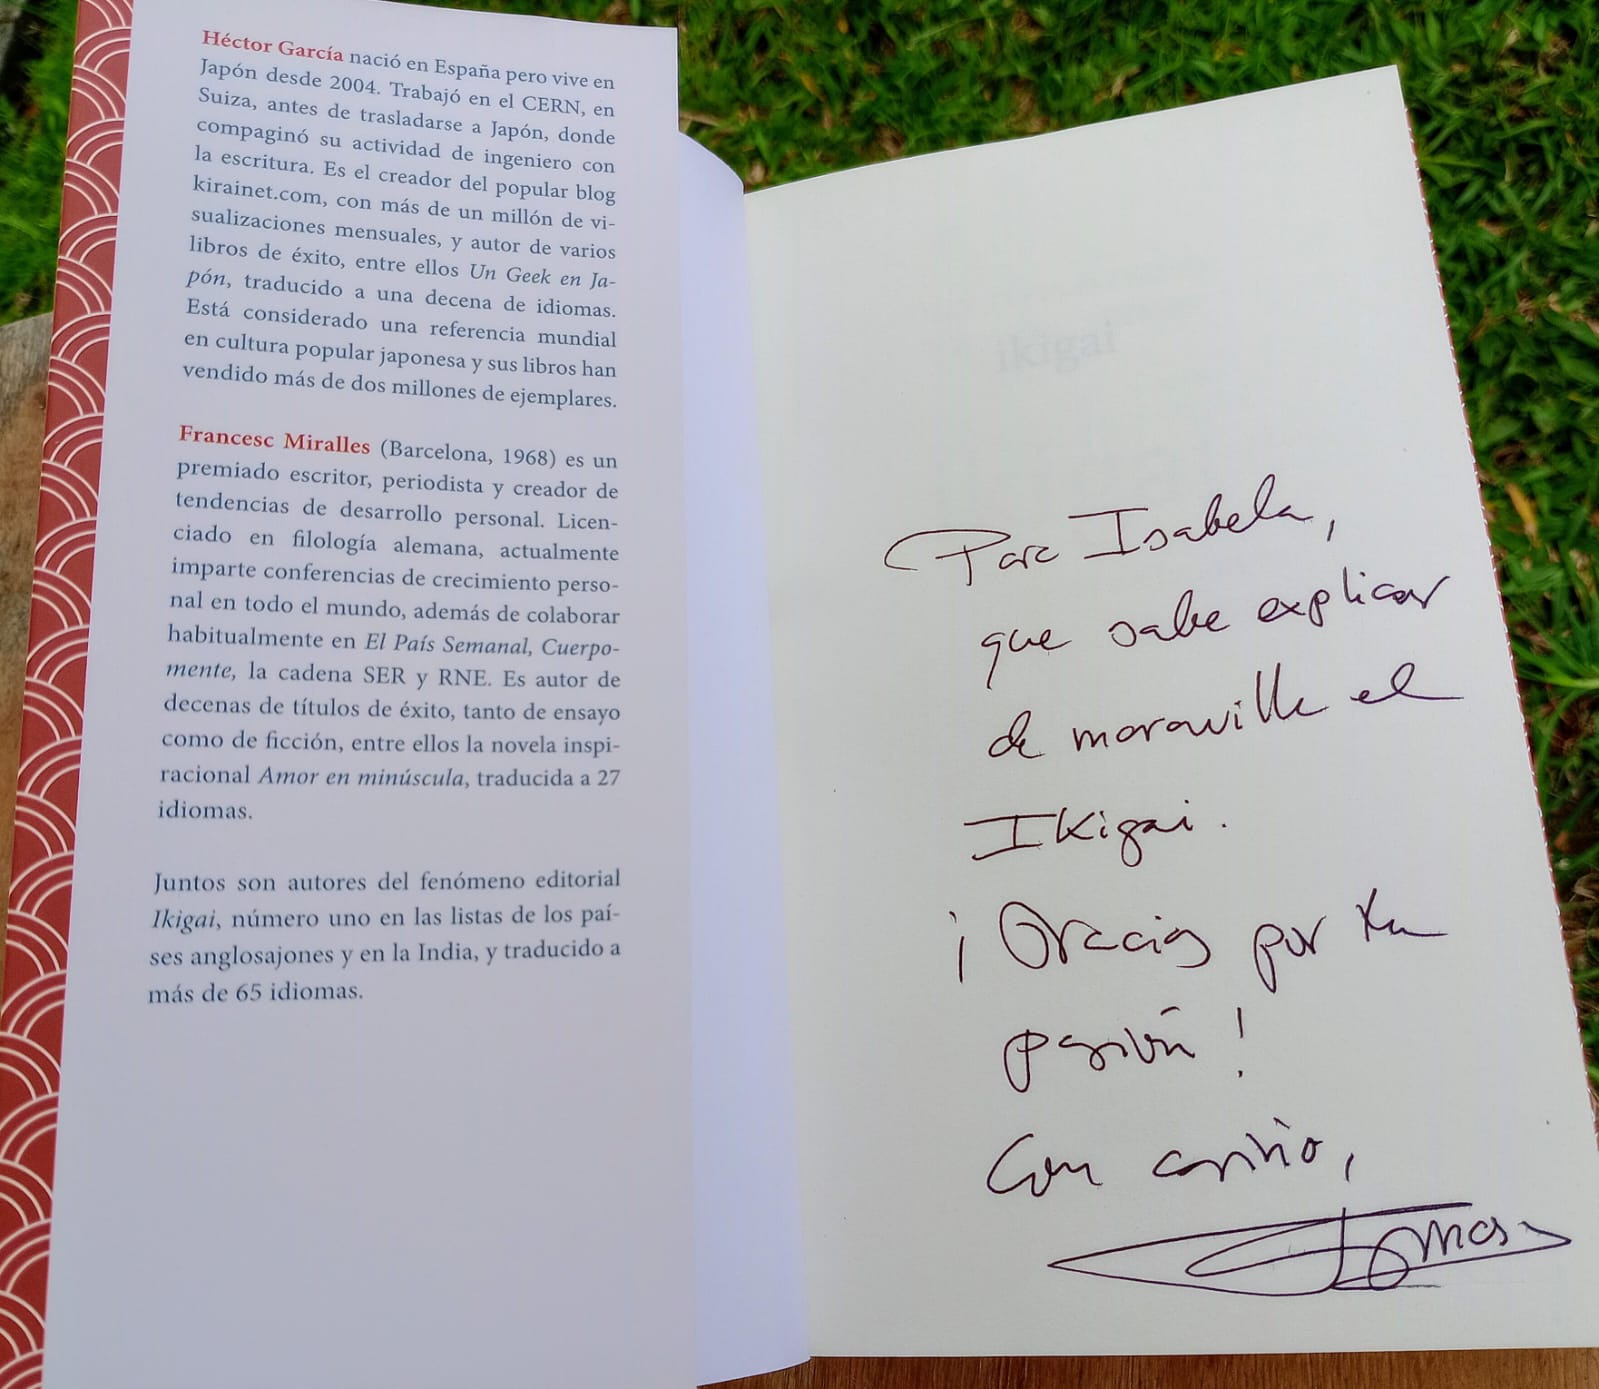 Héctor García nació en España pero vive en
Japón desde 2004. Trabajó en el CERN, en
Suiza, antes de trasladarse a Japón, donde
compaginó su actividad de ingeniero con
la escritura. Es el creador del popular blog
kirainet.com, con más de un millón de vi-
sualizaciones mensuales, y autor de varios
libros de éxito, entre ellos Un Geek en Ja-
pón, traducido a una decena de idiomas.
Está considerado una referencia mundial
en cultura popular japonesa y sus libros han
vendido más de dos millones de ejemplares.
Francesc Miralles (Barcelona, 1968) es un
premiado escritor, periodista y creador de
tendencias de desarrollo personal. Licen-
ciado en filología alemana, actualmente
imparte conferencias de crecimiento perso-
nal en todo el mundo, además de colaborar
habitualmente en El País Semanal, Cuerpo-
mente, la cadena SER y RNE. Es autor de
decenas de títulos de éxito, tanto de ensayo
como de ficción, entre ellos la novela inspi-
racional Amor en minúscula, traducida a 27
idiomas.
Juntos son autores del fenómeno editorial
Ikigai, número uno en las listas de los paí-
ses anglosajones y en la India, y traducido a
más de 65 idiomas.
ikigai
Para Isabela,
que sabe explicar
de maravilla el
Ikigai.
¡Gracias por tu
pasión!
Con cariño,